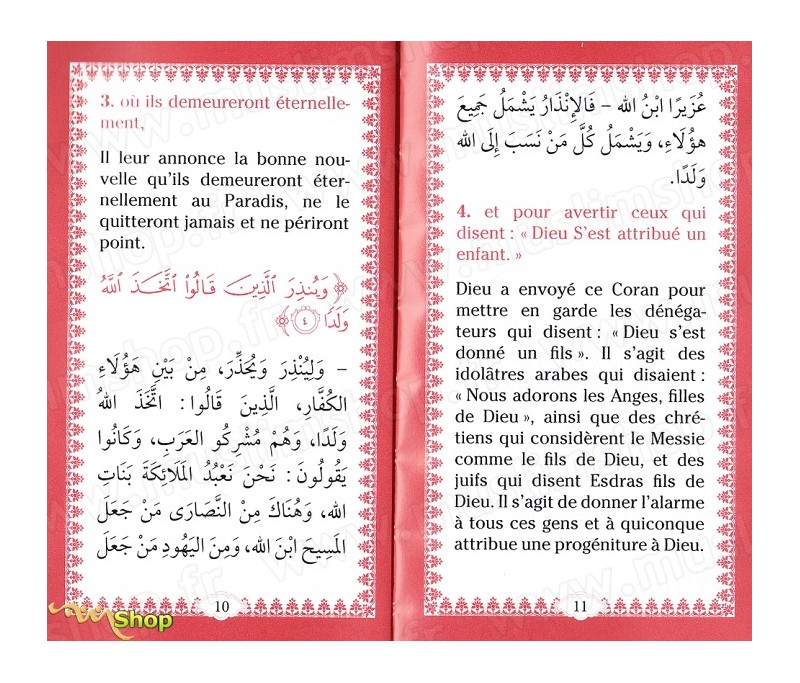 3. où ils demeureront éternelle-
ment,
Il leur annonce la bonne nou-
velle qu'ils demeureront éter-
nellement au Paradis, ne le
quitteront jamais et ne périront
point.
﴿ وَيُنذِرَ ٱلَّذِينَ قَالُوا۟ ٱتَّخَذَ ٱللَّهُ
وَلَدًا ٤ ﴾
– وَلِيُنْذِرَ وَيُحَذِّرَ، مِنْ بَيْنِ هَؤُلَاءِ
الكُفَّارِ، الَّذِينَ قَالُوا: اتَّخَذَ اللهُ
وَلَدًا، وَهُمْ مُشْرِكُو العَرَبِ، وَكَانُوا
يَقُولُونَ: نَحْنُ نَعْبُدُ المَلَائِكَةَ بَنَاتِ
الله، وَهُنَاكَ مِنْ النَّصَارَى مَنْ جَعَلَ
المَسِيحَ ابْنَ الله، وَمِنَ اليَهُودِ مَنْ جَعَلَ
10
عُزَيرًا ابْنُ الله – فَالإِنْذَارُ يَشْمَلُ جَمِيعَ
هؤُلَاءِ، وَيَشْمَلُ كُلَّ مَنْ نَسَبَ إِلَى الله
وَلَدًا.
4. et pour avertir ceux qui
disent : « Dieu S'est attribué un
enfant. »
Dieu a envoyé ce Coran pour
mettre en garde les dénéga-
teurs qui disent : « Dieu s'est
donné un fils ». Il s'agit des
idolâtres arabes qui disaient :
« Nous adorons les Anges, filles
de Dieu », ainsi que des chré-
tiens qui considèrent le Messie
comme le fils de Dieu, et des
juifs qui disent Esdras fils de
Dieu. Il s'agit de donner l'alarme
à tous ces gens et à quiconque
attribue une progéniture à Dieu.
11
Shop